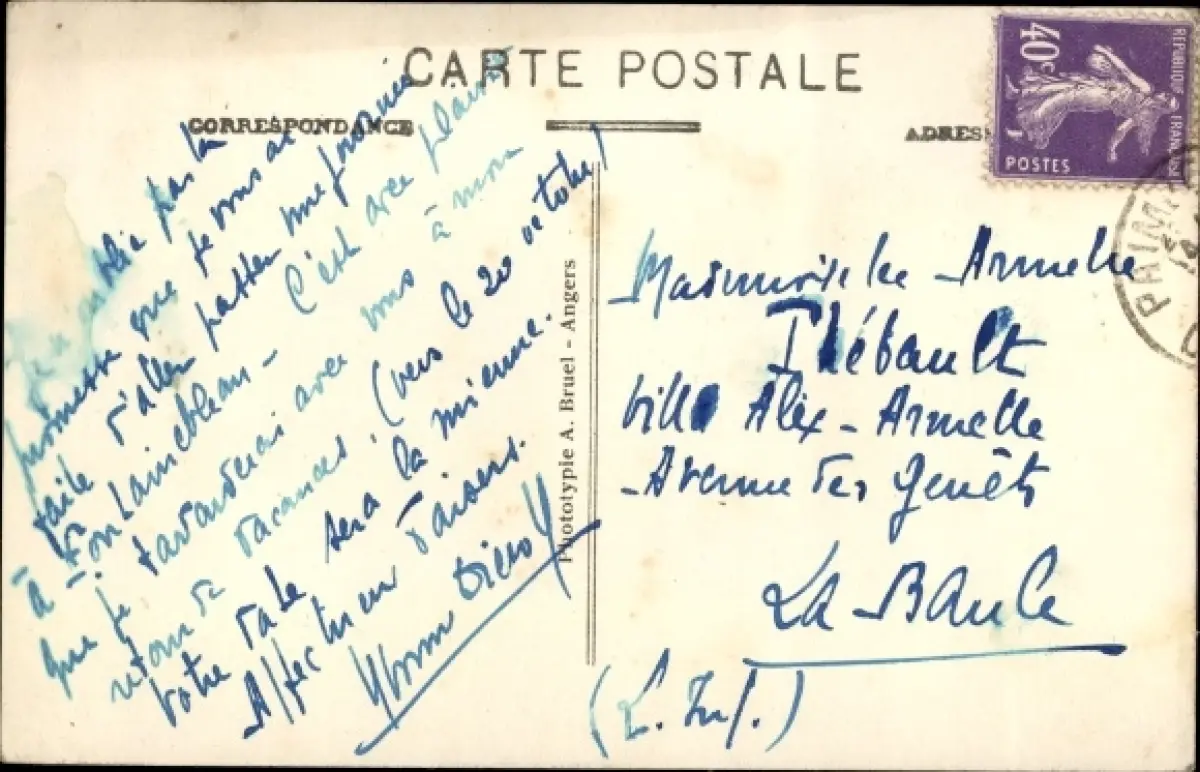 CARTE POSTALE
CORRESPONDANCE
ADRES
40c
REPUBLIQUE FRANÇAISE
POSTES
PAIM
oublie pas la
promesse que je vous ai
faite d'aller passer une journée
à Fontainebleau - C'est avec plaisir
que je avec vous à mon
retour de vacances. (vers le 20 octobre)
Votre date sera la mienne.
Affectueux baisers.
Yvonne
Phototypie A. Bruel - Angers
Mademoiselle Armelle
Thébault
Villa Alex - Armelle
Avenue des Genêts
La Baule
(L. Inf.)